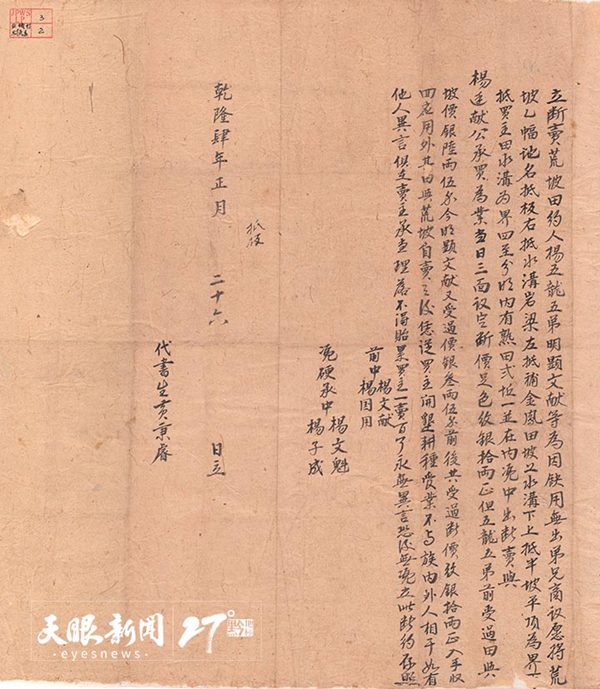 立断賣荒坡田約人楊五龍五弟明顕文献等為因缺用無出弟兄商议愿将荒
坡乙幅地名抵校右抵水溝岩梁左抵補金鳳田坡以水溝下上抵半坡平項為界一
抵買主田水溝为界四至分明内有熟田弍坵一並在内凴中出断賣與
楊廷献公承買為業當日三面议定断價足色纹銀拾両正但五龍五弟前受過田與
坡價銀陸両伍分今明顕文献又受過價銀叁両伍分前後共受過断價纹銀拾両正入手收
回应用外其田與荒坡自賣之後凭從買主開墾耕種受業不与族内外人相干如有
他人異言俱在賣主承當理落不得貽累買主一賣百了永無異言恐後無凴立此断約存照
前中 楊文献 楊因用
凴硬承中 楊文魁 楊子成
抵校
乾隆肆年正月 二十六 日立
代書生黄秉睿
3
2
天眼新闻 27°
-eyesnews-